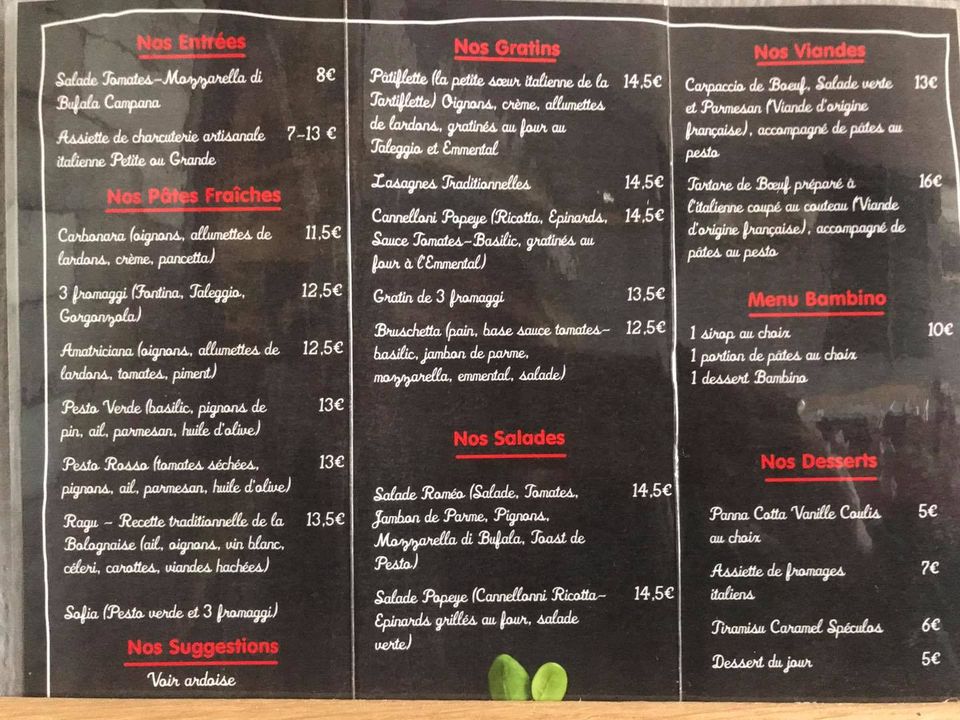 Nos Entrées
Salade Tomates-Mozzarella di 8€
Bufala Campana
Assiette de charcuterie artisanale 7-13 €
italienne Petite ou Grande
Nos Pâtes Fraîches
Carbonara (oignons, allumettes de 11,5€
lardons, crème, pancetta)
3 fromaggi (Fontina, Taleggio, 12,5€
Gorgonzola)
Amatriciana (oignons, allumettes de 12,5€
lardons, tomates, piment)
Pesto Verde (basilic, pignons de 13€
pin, ail, parmesan, huile d'olive)
Pesto Rosso (tomates séchées, 13€
pignons, ail, parmesan, huile d'olive)
Ragu - Recette traditionnelle de la 13,5€
Bolognaise (ail, oignons, vin blanc,
céleri, carottes, viandes hachées)
Sofia (Pesto verde et 3 fromaggi)
Nos Suggestions
Voir ardoise
Nos Gratins
Pâtiflette (la petite sœur italienne de la 14,5€
Tartiflette) Oignons, crème, allumettes
de lardons, gratinés au four au
Taleggio et Emmental
Lasagnes Traditionnelles 14,5€
Cannelloni Popeye (Ricotta, Epinards, 14,5€
Sauce Tomates-Basilic, gratinés au
four à l'Emmental)
Gratin de 3 fromaggi 13,5€
Bruschetta (pain, base sauce tomates- 12,5€
basilic, jambon de parme,
mozzarella, emmental, salade)
Nos Salades
Salade Roméo (Salade, Tomates, 14,5€
Jambon de Parme, Pignons,
Mozzarella di Bufala, Toast de
Pesto)
Salade Popeye (Cannellonni Ricotta- 14,5€
Epinards grillés au four, salade
verte)
Nos Viandes
Carpaccio de Boeuf, Salade verte 13€
et Parmesan (Viande d'origine
française), accompagné de pâtes au
pesto
Tartare de Bœuf préparé à 16€
l'italienne coupé au couteau (Viande
d'origine française), accompagné de
pâtes au pesto
Menu Bambino
1 sirop au choix 10€
1 portion de pâtes au choix
1 dessert Bambino
Nos Desserts
Panna Cotta Vanille Coulis 5€
au choix
Assiette de fromages 7€
italiens
Tiramisu Caramel Spéculos 6€
Dessert du jour 5€